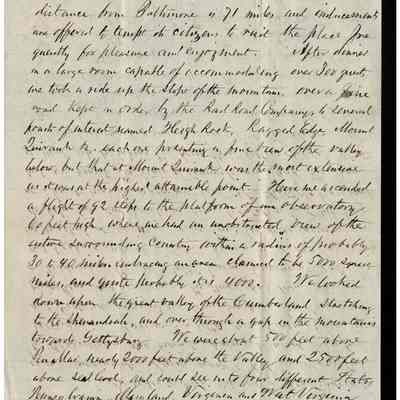 distance from Baltimore is 71 miles and inducements
are offered to tempt its citizens to visit the place fre
quently for pleasure and enjoyment. After dinner
in a large room capable of accommodating over 300 guests
we took a ride up the slope of the mountain over a fine
road kept in order by the Rail Road Company to several
points of interest named High Rock, Ragged Edge, Mount
Quirauk &c, each one presenting a fine view of the valley
below, but that at Mount Quirauk was the most extensive
as it was at the highest attainable point. Here we ascended
a flight of 92 steps to the platform of an observatory
60 feet high, where we had an unobstructed view of the
entire surrounding country within a radius of probably
30 to 40 miles embracing an area claimed to be 5000 square
miles, and quite probably it is 4000. We looked
down upon the great valley of the Cumberland stretching
to the Shenandoah, and over through a gap in the mountains
towards Gettysburg. We were about 500 feet above
Pen Mar, nearly 2000 feet above the Valley and 2500 feet
above sea level, and could see into four different States,
Pennsylvania, Maryland, Virginia and West Virginia